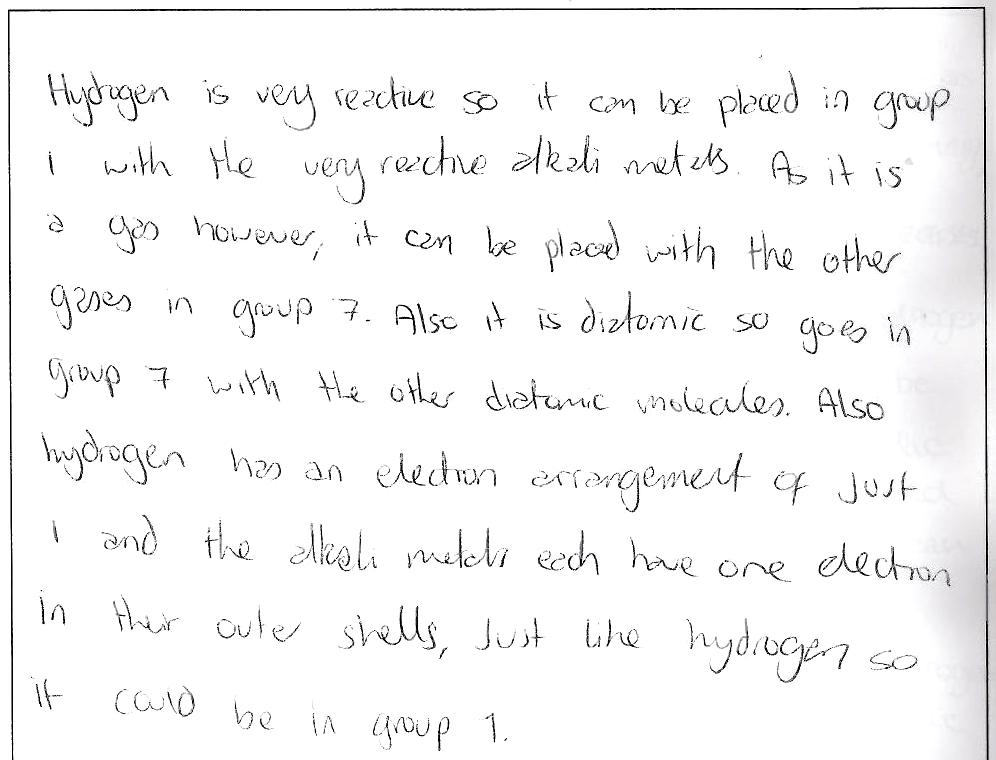 Hydrogen is very reactive so it can be placed in group
1 with the very reactive alkali metals. As it is
a gas however, it can be placed with the other
gases in group 7. Also it is diatomic so goes in
group 7 with the other diatomic molecules. Also
hydrogen has an electron arrangement of just
1 and the alkali metals each have one electron
in their outer shells, just like hydrogen so
it could be in group 1.